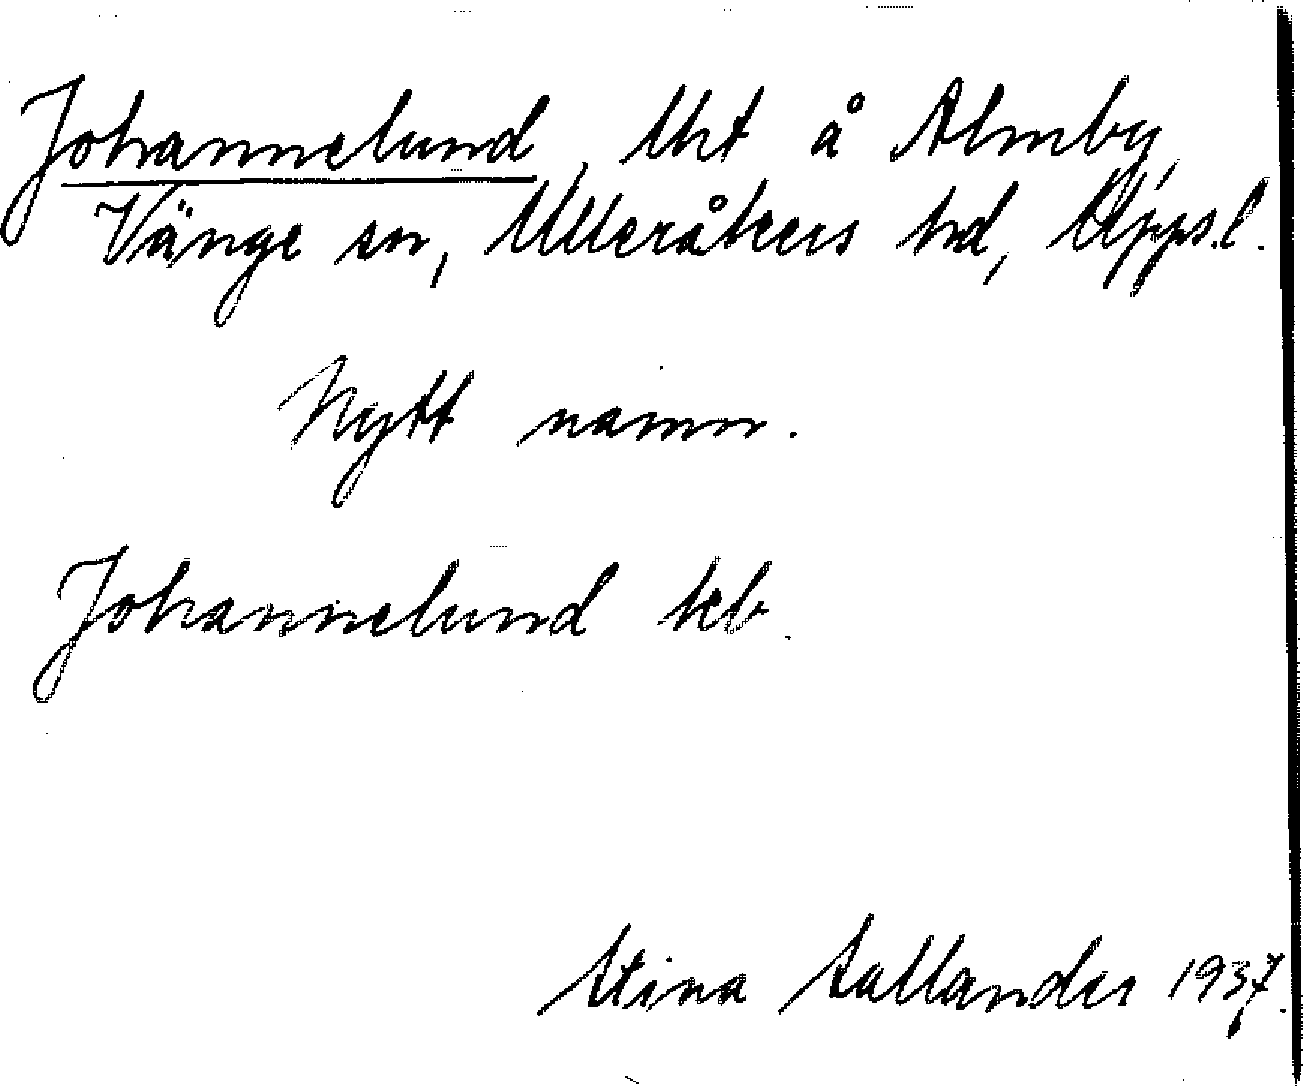 Johannelund, lht å Almby,
Vänge sn, Ulleråkers hd, Upps.l.
Nytt namn.
Johannelund keb.
Stina Sallander 1937.